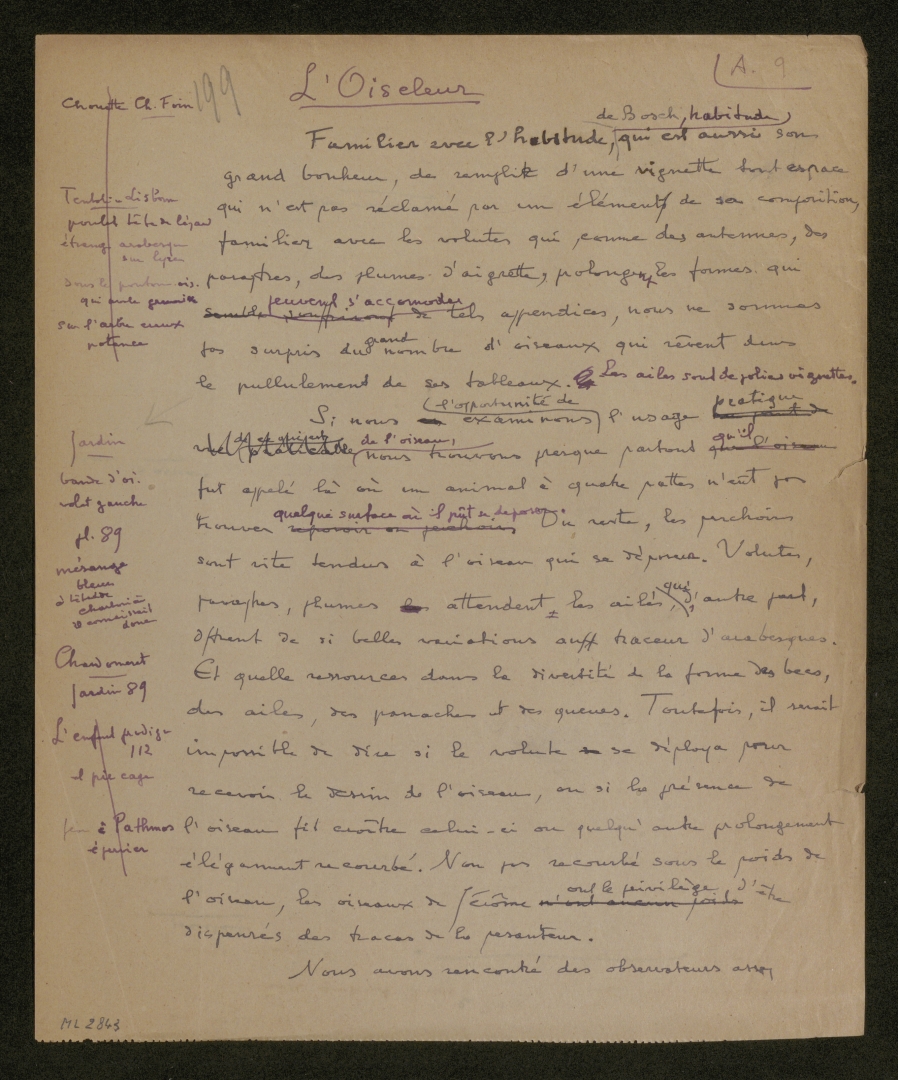 A. 9
199
L'Oiseleur
Chouette Ch. Foin
de Bosch, habitude,
Familier avec l'habitude, qui est aussi son
grand bonheur, de remplir d'une vignette tout espace
qui n'est pas réclamé par un élément de sa composition,
familier avec les volutes qui, comme des antennes, des
paraphes, des plumes d'aigrette, prolongent les formes qui
peuvent s'accomoder
semble de tels appendices, nous ne sommes
pas surpris du grand nombre d'oiseaux qui rêvent dans
le pullulement de ses tableaux. Les ailes sont de jolies vignettes.
Si nous examinons l'opportunité de l'usage pratique
de l'oiseau, nous trouvons presque partout qu'il
fut appelé là où un animal à quatre pattes n'eut pu
trouver quelque surface où il pût se déposer. Du reste, les perchoirs
sont vite tendus à l'oiseau qui se dépose. Volutes,
paraphes, plumes attendent les ailes, qui, d'autre part,
offrent de si belles variations au traceur d'arabesques.
Et quelle ressources dans la diversité de la forme des becs,
des ailes, des panaches et des queues. Toutefois, il serait
impossible de dire si la volute se déploya pour
recevoir le dessin de l'oiseau, ou si la présence de
l'oiseau fit croître celui-ci ou quelqu'autre prolongement
élégamment recourbé. Non pas recourbé sous le poids de
l'oiseau, les oiseaux de Jérôme n'ont aucun poids ont le privilège d'être
dispensés des tracas de la pesanteur.
Nous avons rencontré des observateurs
Lisbonne
étrange arabesque
sur l'arbre creux
potence
Jardin
bande d'oi.
volet gauche
pl. 89
mésange
bleue
Chardonneret
Jardin 89
L'enfant prodigue
112
et pie cage
à Pathmos
épervier
ML 2843